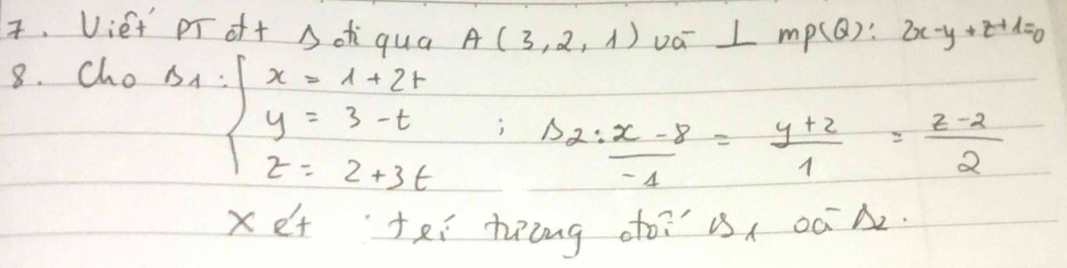 7. Viết PT đtt Δ đi qua A(3,2,1) và ⊥ mp(Q): 2x-y+z+1=0
8. Cho Δ1: { x = 1+2t
y = 3-t ; Δ2: x-8/-1 = y+2/1 = z-2/2
z = 2+3t
Xét tương đối Δ1 và Δ2.